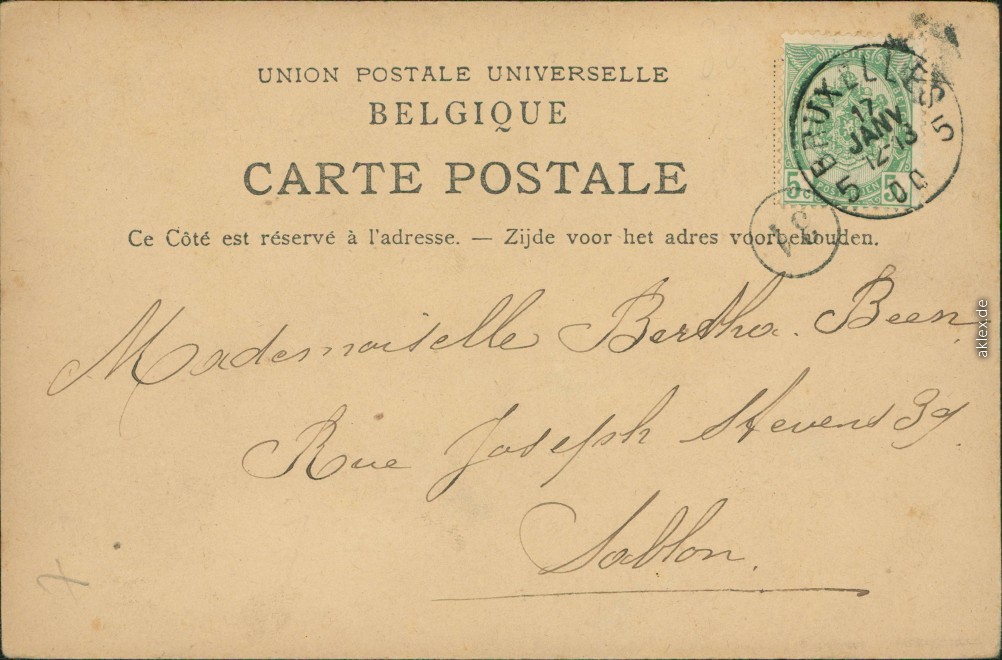 UNION POSTALE UNIVERSELLE
BELGIQUE
CARTE POSTALE
Ce Côté est réservé à l'adresse. — Zijde voor het adres voorbehouden.
POSTES
5c POSTERIJEN 5c
5 BRUXELLES 5
17
JANV
12-13
00
Mademoiselle Bertha Been
Rue Joseph Stevens 39
Sablon.
aklex.de